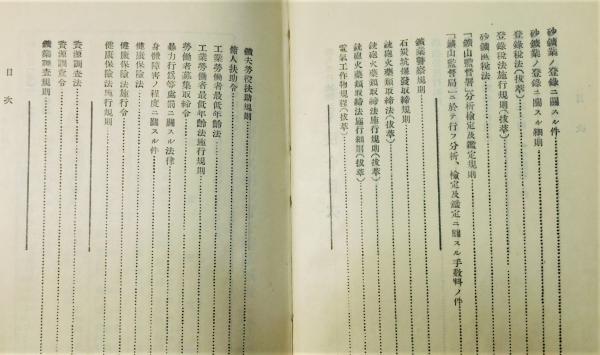 砂鑛業ノ登錄ニ關スル件
砂鑛業ノ登錄ニ關スル細則
登錄稅法(拔萃)
登錄稅法施行規則(拔萃)
砂鑛區稅法
「鑛山監督署」分析檢定及鑑定規則
「鑛山監督局」ニ於テ行フ分析、檢定及鑑定ニ關スル手數料ノ件
鑛業警察規則
石炭坑爆發取締規則
銃砲火藥類取締法(拔萃)
銃砲火藥類取締法施行規則(拔萃)
銃砲火藥類取締法施行細則(拔萃)
電氣工作物規程(拔萃)
鑛夫勞役扶助規則
傭人扶助令
工業勞働者最低年齡法
工業勞働者最低年齡法施行規則
勞働者募集取締令
暴力行爲等處罰ニ關スル法律
身體障害ノ程度ニ關スル件
健康保險法
健康保險法施行令
健康保險法施行規則
資源調查法
資源調查令
鑛業調查規則
目次